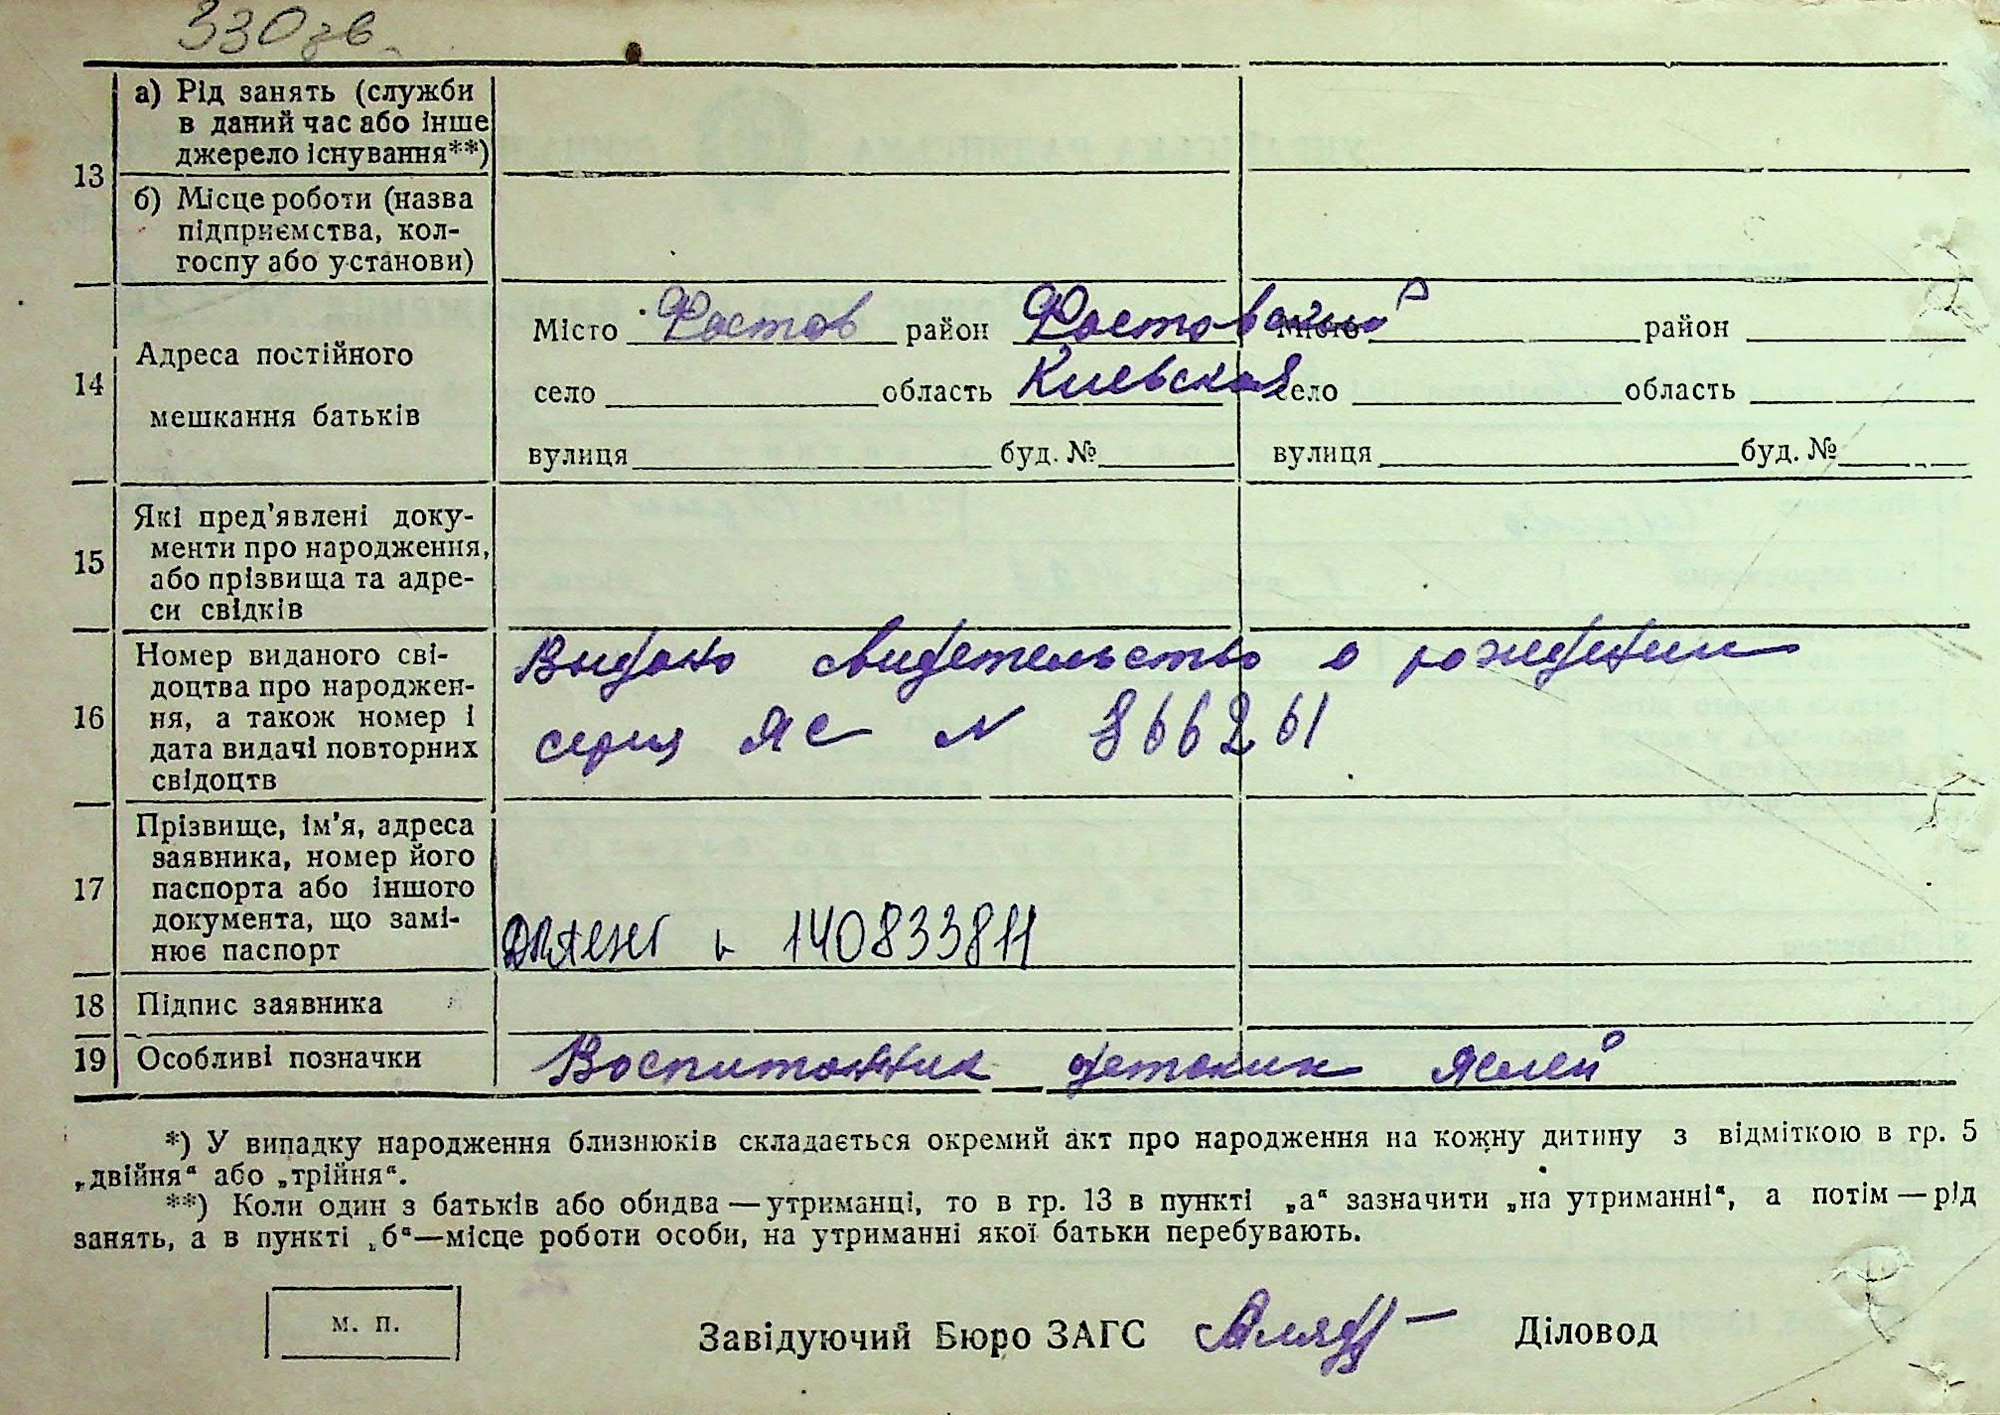 330 зв
13
а) Рід занять (служби
в даний час або інше
джерело існування**)
б) Місце роботи (назва
підприємства, кол-
госпу або установи)
14
Адреса постійного
мешкання батьків
Місто Фастов район Фастовский Місто район
село область Киевская село область
вулиця буд. № вулиця буд. №
15
Які пред'явлені доку-
менти про народження,
або прізвища та адре-
си свідків
16
Номер виданого сві-
доцтва про народжен-
ня, а також номер і
дата видачі повторних
свідоцтв
Выдано свидетельство о рождении
серия ЯС N 866261
17
Прізвище, ім'я, адреса
заявника, номер його
паспорта або іншого
документа, що замі-
нює паспорт
140833811
18 Підпис заявника
19 Особливі позначки Воспитанник детских яслей
*) У випадку народження близнюків складається окремий акт про народження на кожну дитину з відміткою в гр. 5
„двійня“ або „трійня“.
**) Коли один з батьків або обидва — утриманці, то в гр. 13 в пункті „а“ зазначити „на утриманні“, а потім — рід
занять, а в пункті „б“—місце роботи особи, на утриманні якої батьки перебувають.
м. п.
Завідуючий Бюро ЗАГС Діловод